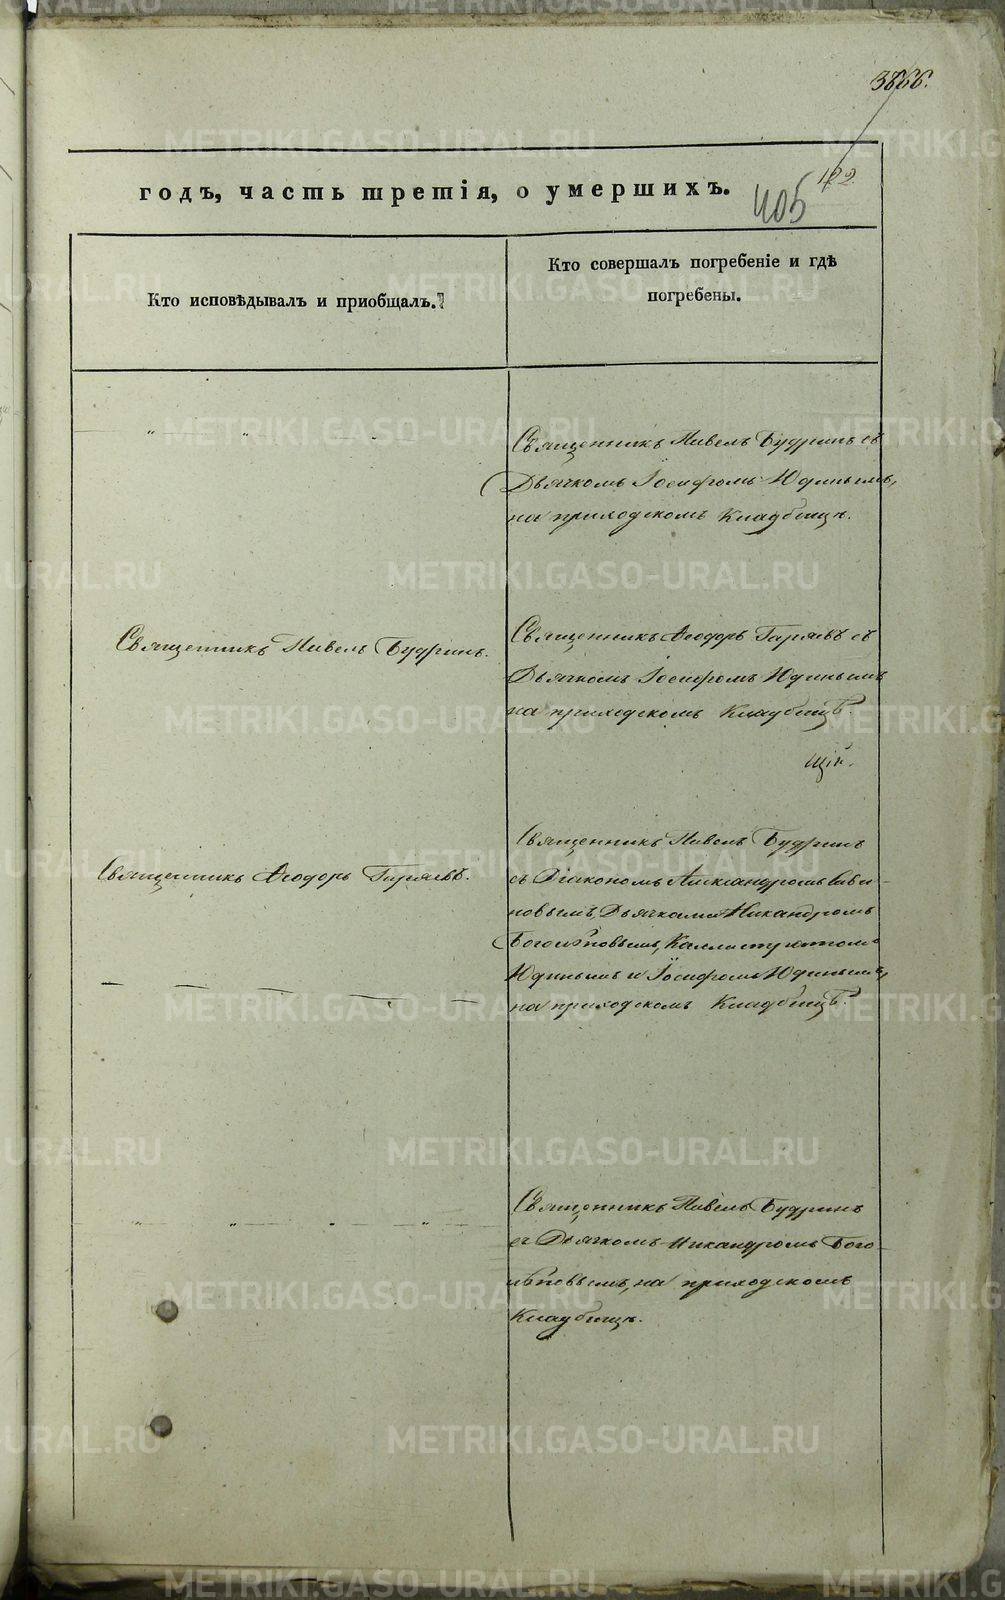 3866.
122.
405
годъ, часть третія, о умершихъ.
Кто исповѣдывалъ и пріобщалъ.
Кто совершалъ погребеніе и гдѣ
погребены.
Священникъ Павелъ Будринъ съ
Дьячкомъ Іосифомъ Юдинымъ,
на приходскомъ Кладбищѣ.
Священникъ Павелъ Будринъ.
Священникъ Ѳеодоръ Гаряевъ съ
Дьячкомъ Іосифомъ Юдинымъ
на приходскомъ Кладбищѣ.
Священникъ Ѳеодоръ Гаряевъ.
Священникъ Павелъ Будринъ
съ Діакономъ Александромъ Сави-
новымъ, Дьячками Никандромъ
Боголѣповымъ, Каллистратомъ
Юдинымъ и Іосифомъ Юдинымъ,
на приходскомъ Кладбищѣ.
Священникъ Павелъ Будринъ
съ Дьячкомъ Никандромъ Бого-
лѣповымъ, на приходскомъ
Кладбищѣ.
METRIKI.GASO-URAL.RU